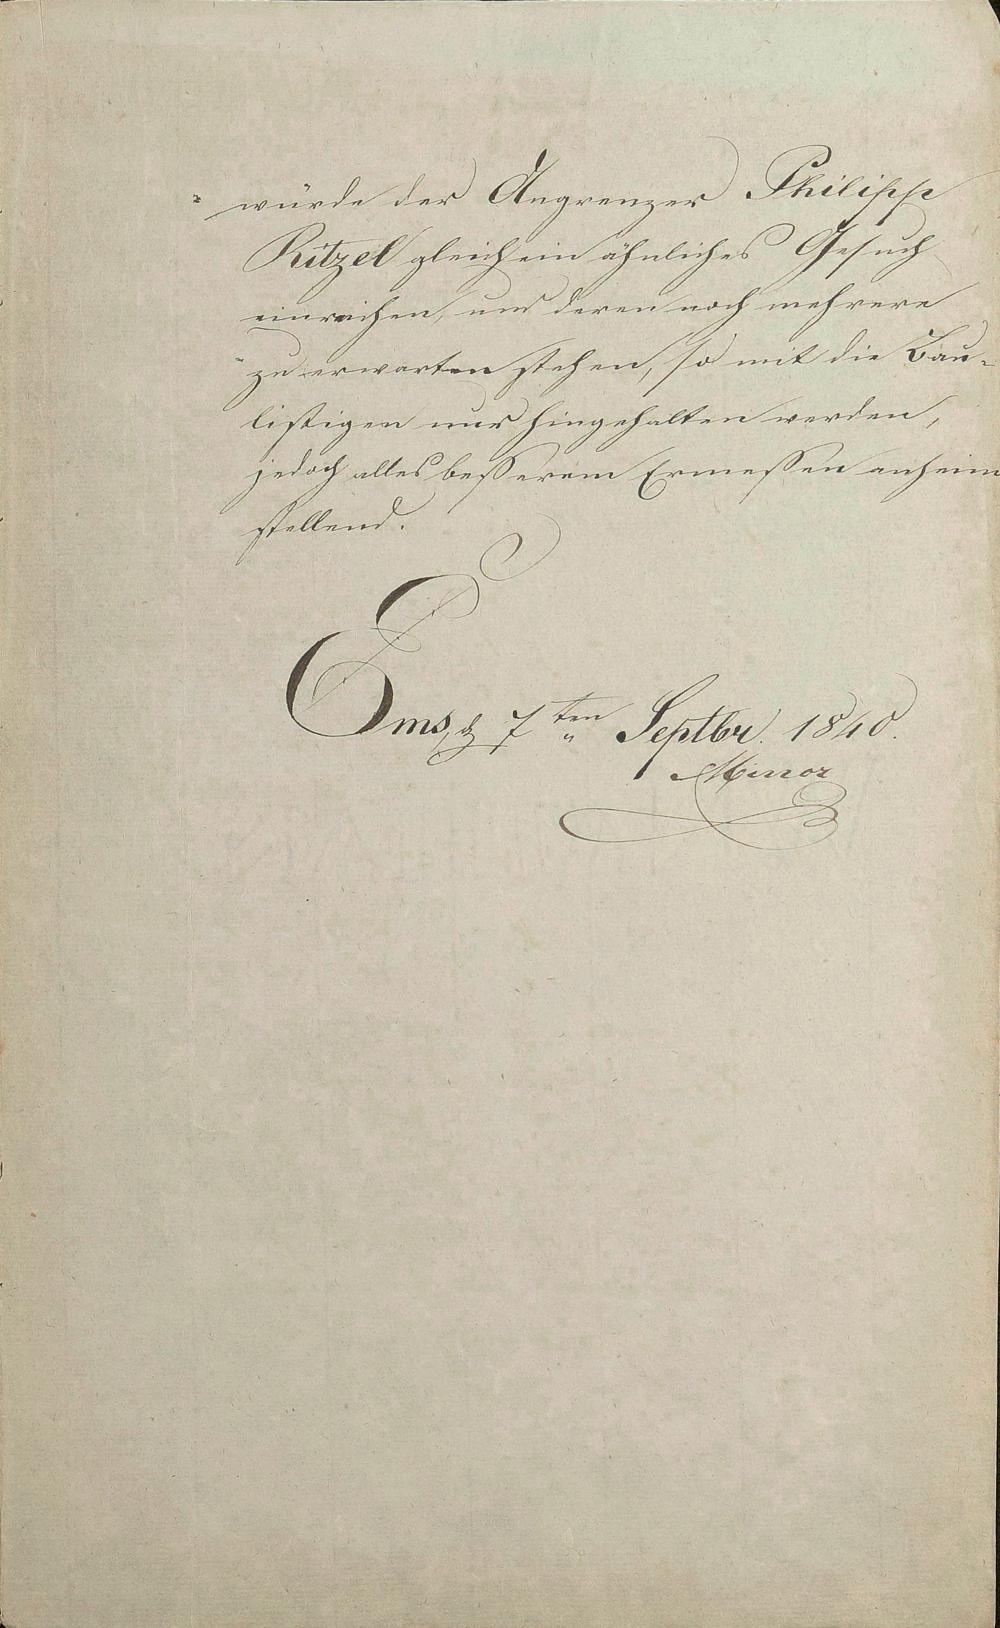 würde der Angrenzer Philipp
Ritzel gleich ein ähnliches Gesuch
einreichen, und deren noch mehrere
zu erwarten stehen, so mit die Bau-
listigen nur hingehalten werden,
jedoch alles besserem Ermessen anheim
stellend.
Ems, d 7ten Septbr. 1840.
Minor